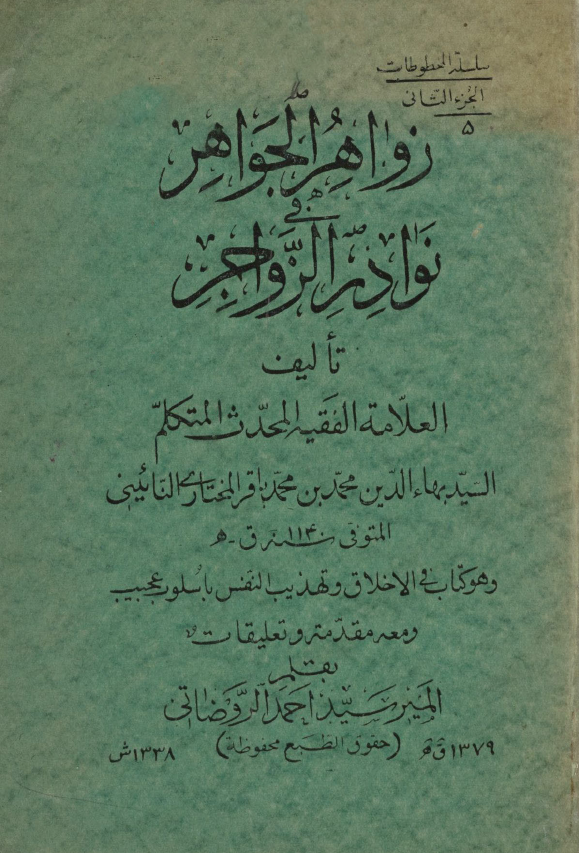 سلسلة المخطوطات
الجزء الثاني
۵
زَواهِرُ الجَوَاهِرِ
في
نَوَادِرِ الزَّوَاجِرِ
تأليف
العلّامة الفقيه المحدّث المتكلّم
السيّد بهاء الدّين محمّد بن محمّد باقر المختاري النائيني
المتوفى سنة ۱۱۴۰ ق ـ ه
وهو كتاب في الاخلاق وتهذيب النفس بأسلوب عجيب
ومعه مقدّمة وتعليقات
بقلم
المير سيّد احمد الرّوضاتي
۱۳۷۹ ق ه (حقوق الطبع محفوظة) ۱۳۳۸ ش